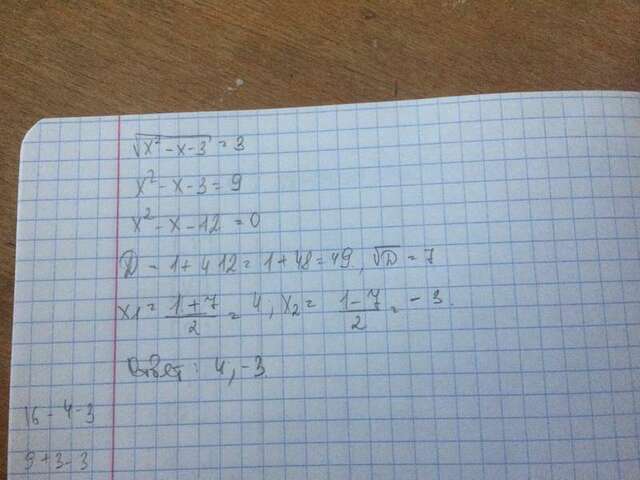 √x²-x-3 = 3
x²-x-3=9
x²-x-12=0
D-1+4 12=1+48=49, √D=7
x1= 1+7/2 = 4, x2= 1-7/2 = -3.
Ответ: 4, -3
16-4-3
9+3-3